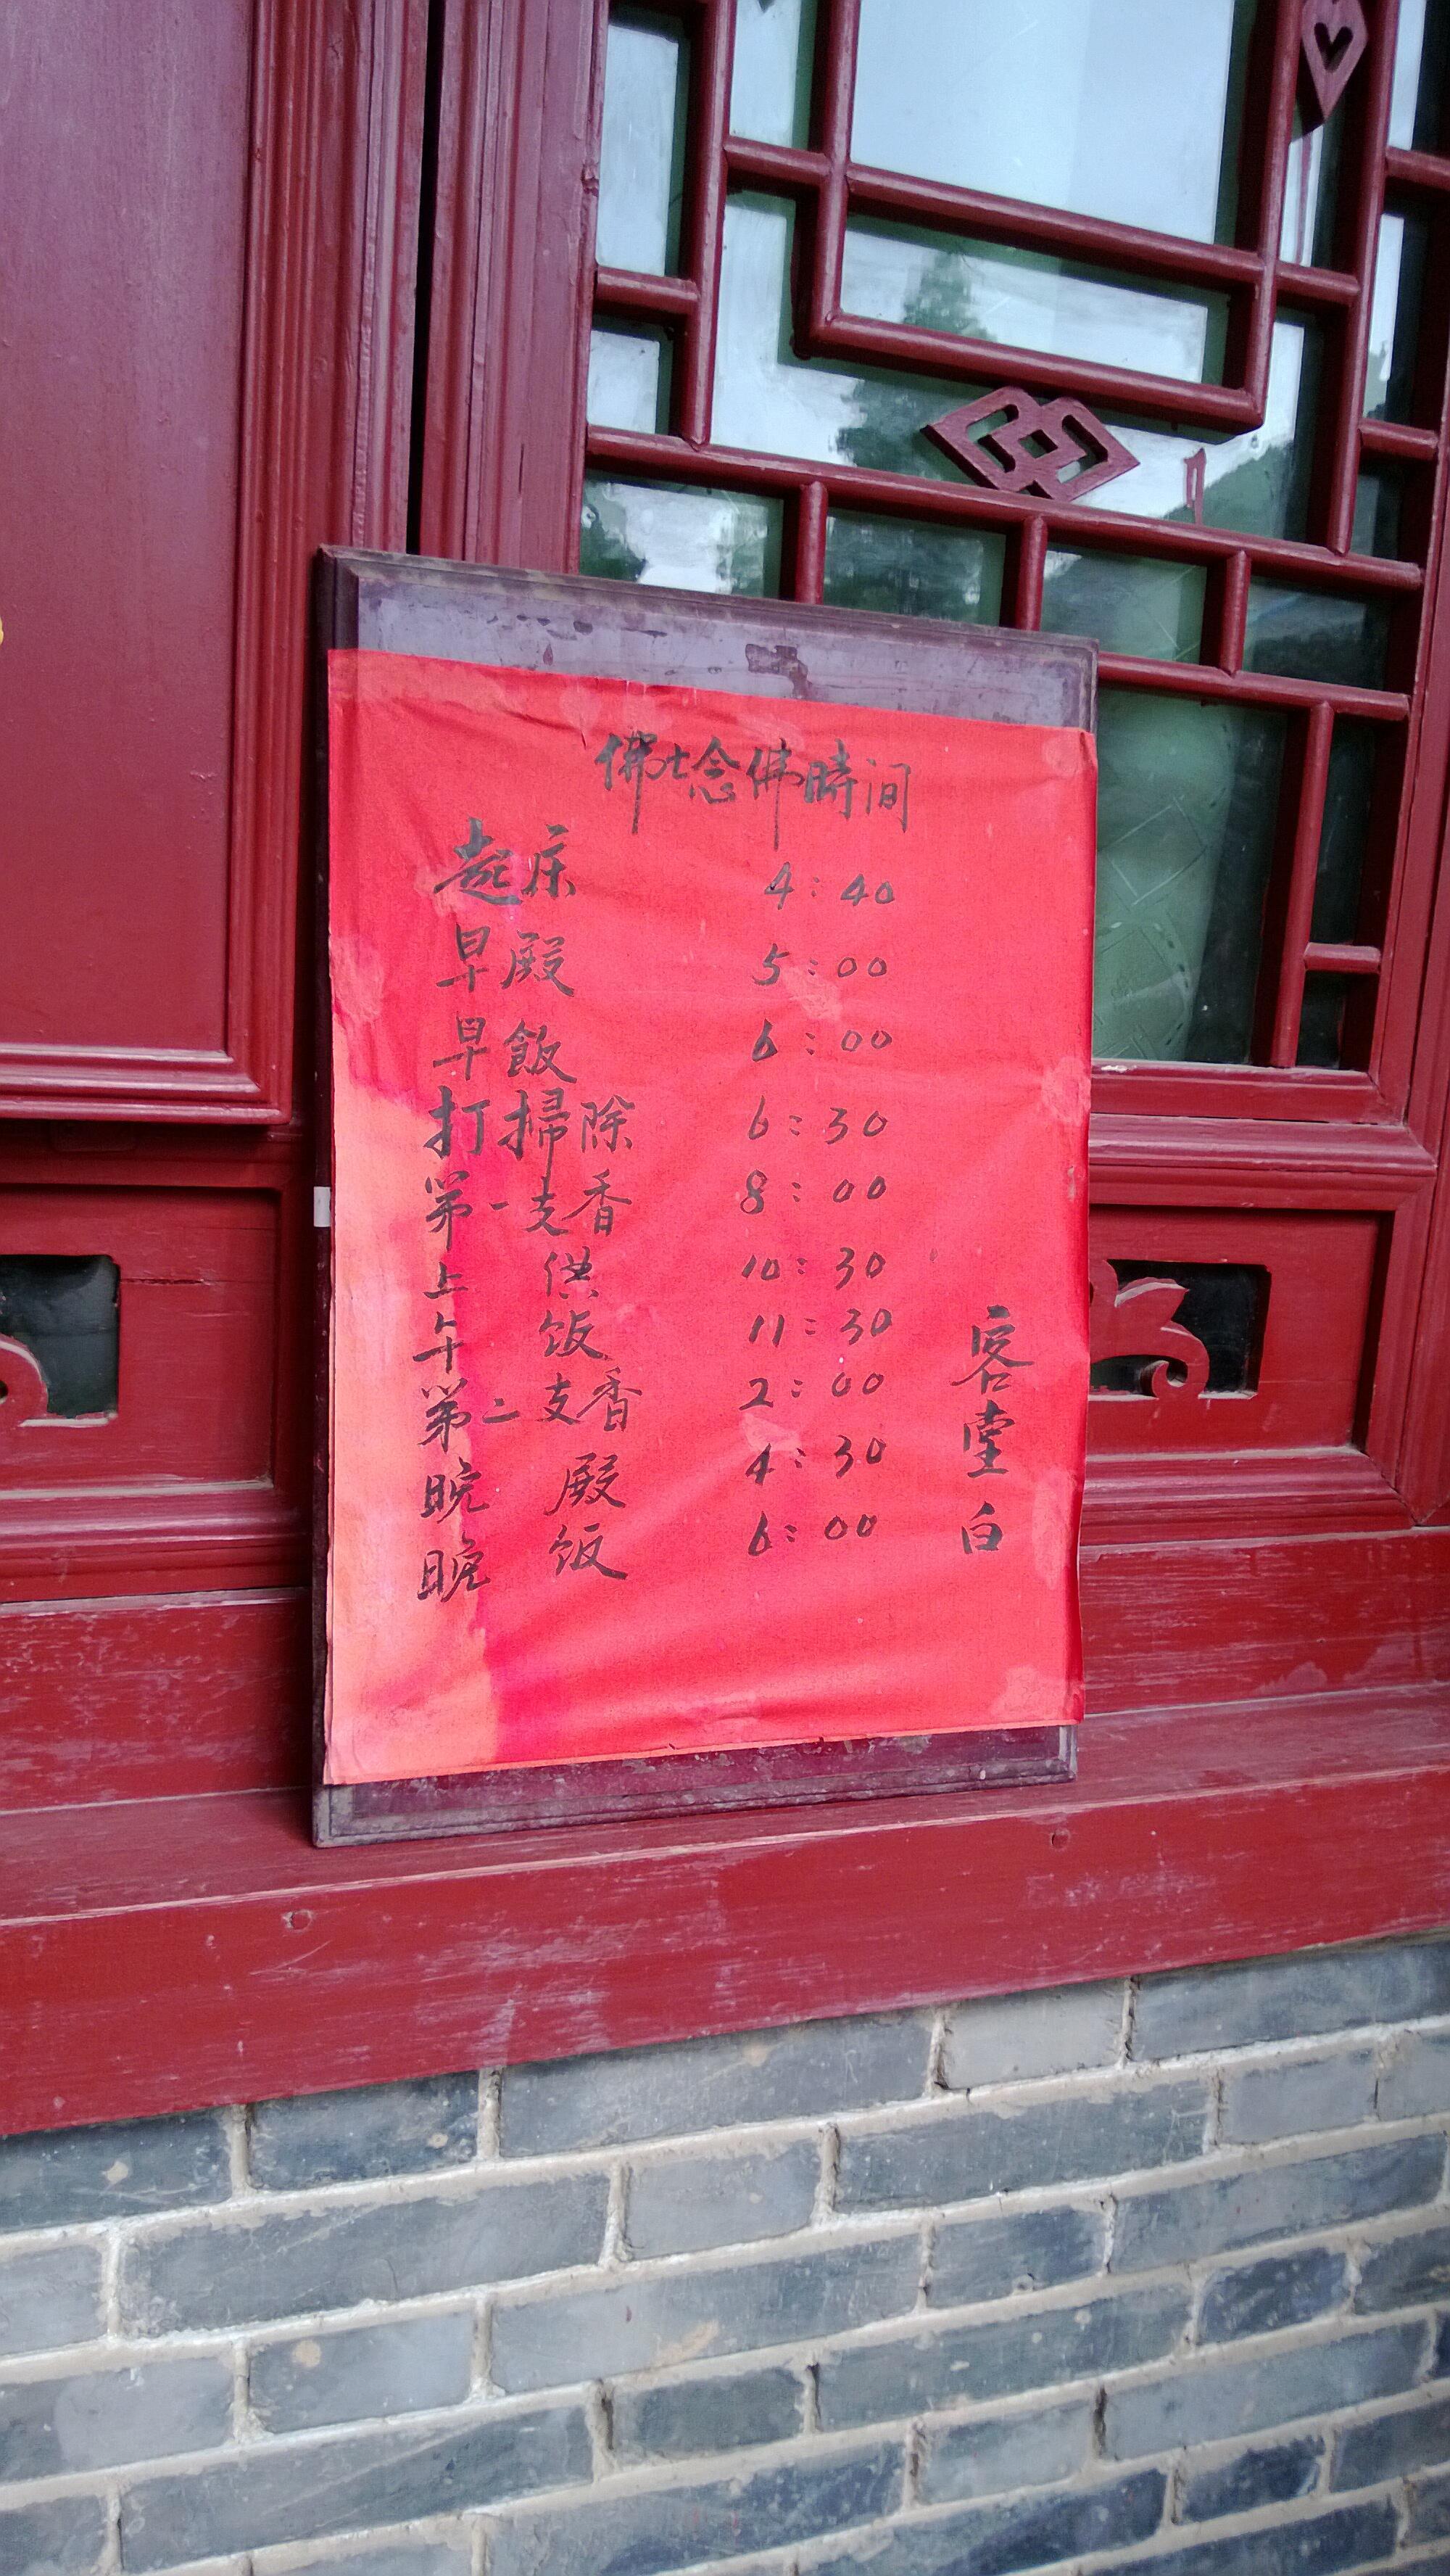 佛七念佛時间
起床 4:40
早殿 5:00
早飯 6:00
打掃除 6:30
第一支香 8:00
上供 10:30
午饭 11:30
第二支香 2:00
晚殿 4:30
晚饭 6:00
客堂白